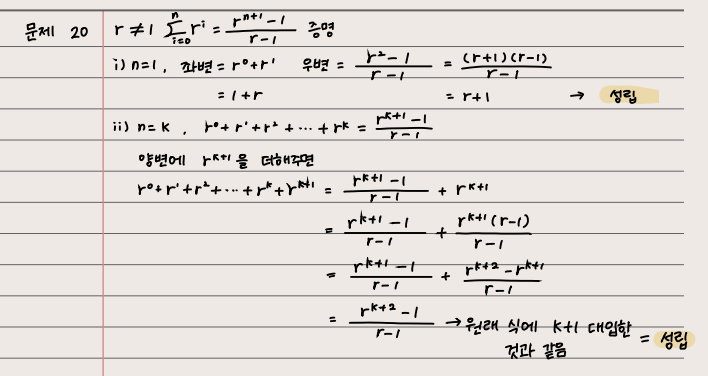 문제 20 r ≠ 1 \sum_{i=0}^{n} r^i = \frac{r^{n+1}-1}{r-1} 증명
i) n=1, 좌변 = r^0+r^1 우변 = \frac{r^2-1}{r-1} = \frac{(r+1)(r-1)}{r-1}
= 1+r = r+1 → 성립
ii) n=k, r^0+r^1+r^2+⋯+r^k = \frac{r^{k+1}-1}{r-1}
양변에 r^{k+1}을 더해주면
r^0+r^1+r^2+⋯+r^k+r^{k+1} = \frac{r^{k+1}-1}{r-1} + r^{k+1}
= \frac{r^{k+1}-1}{r-1} + \frac{r^{k+1}(r-1)}{r-1}
= \frac{r^{k+1}-1}{r-1} + \frac{r^{k+2}-r^{k+1}}{r-1}
= \frac{r^{k+2}-1}{r-1} → 원래 식에 k+1 대입한 = 성립
것과 같음